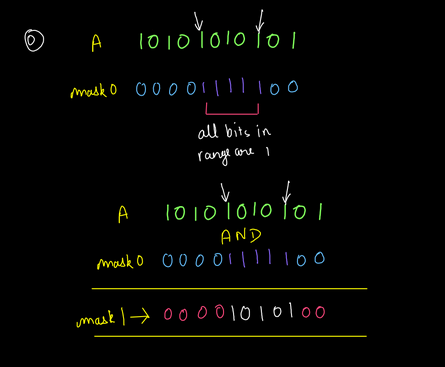 0 A 1 0 1 0 1 0 1 0 1 0 1
mask0 0 0 0 0 1 1 1 1 1 0 0
all bits in
range are 1
A 1 0 1 0 1 0 1 0 1 0 1
AND
mask0 0 0 0 0 1 1 1 1 1 0 0
mask1 → 0 0 0 0 1 0 1 0 1 0 0